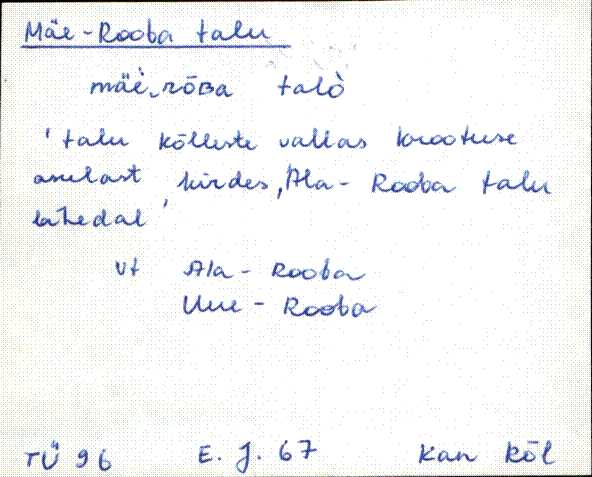 Mäe-Rooba talu
mäè‿rōʙa talò
' talu Kõlleste vallas Krootuse
asulast kirdes, Ala-Rooba talu
lähedal '
vt Ala-Rooba
Uue-Rooba
TÜ 96 E. J. 67 Kan Kõl